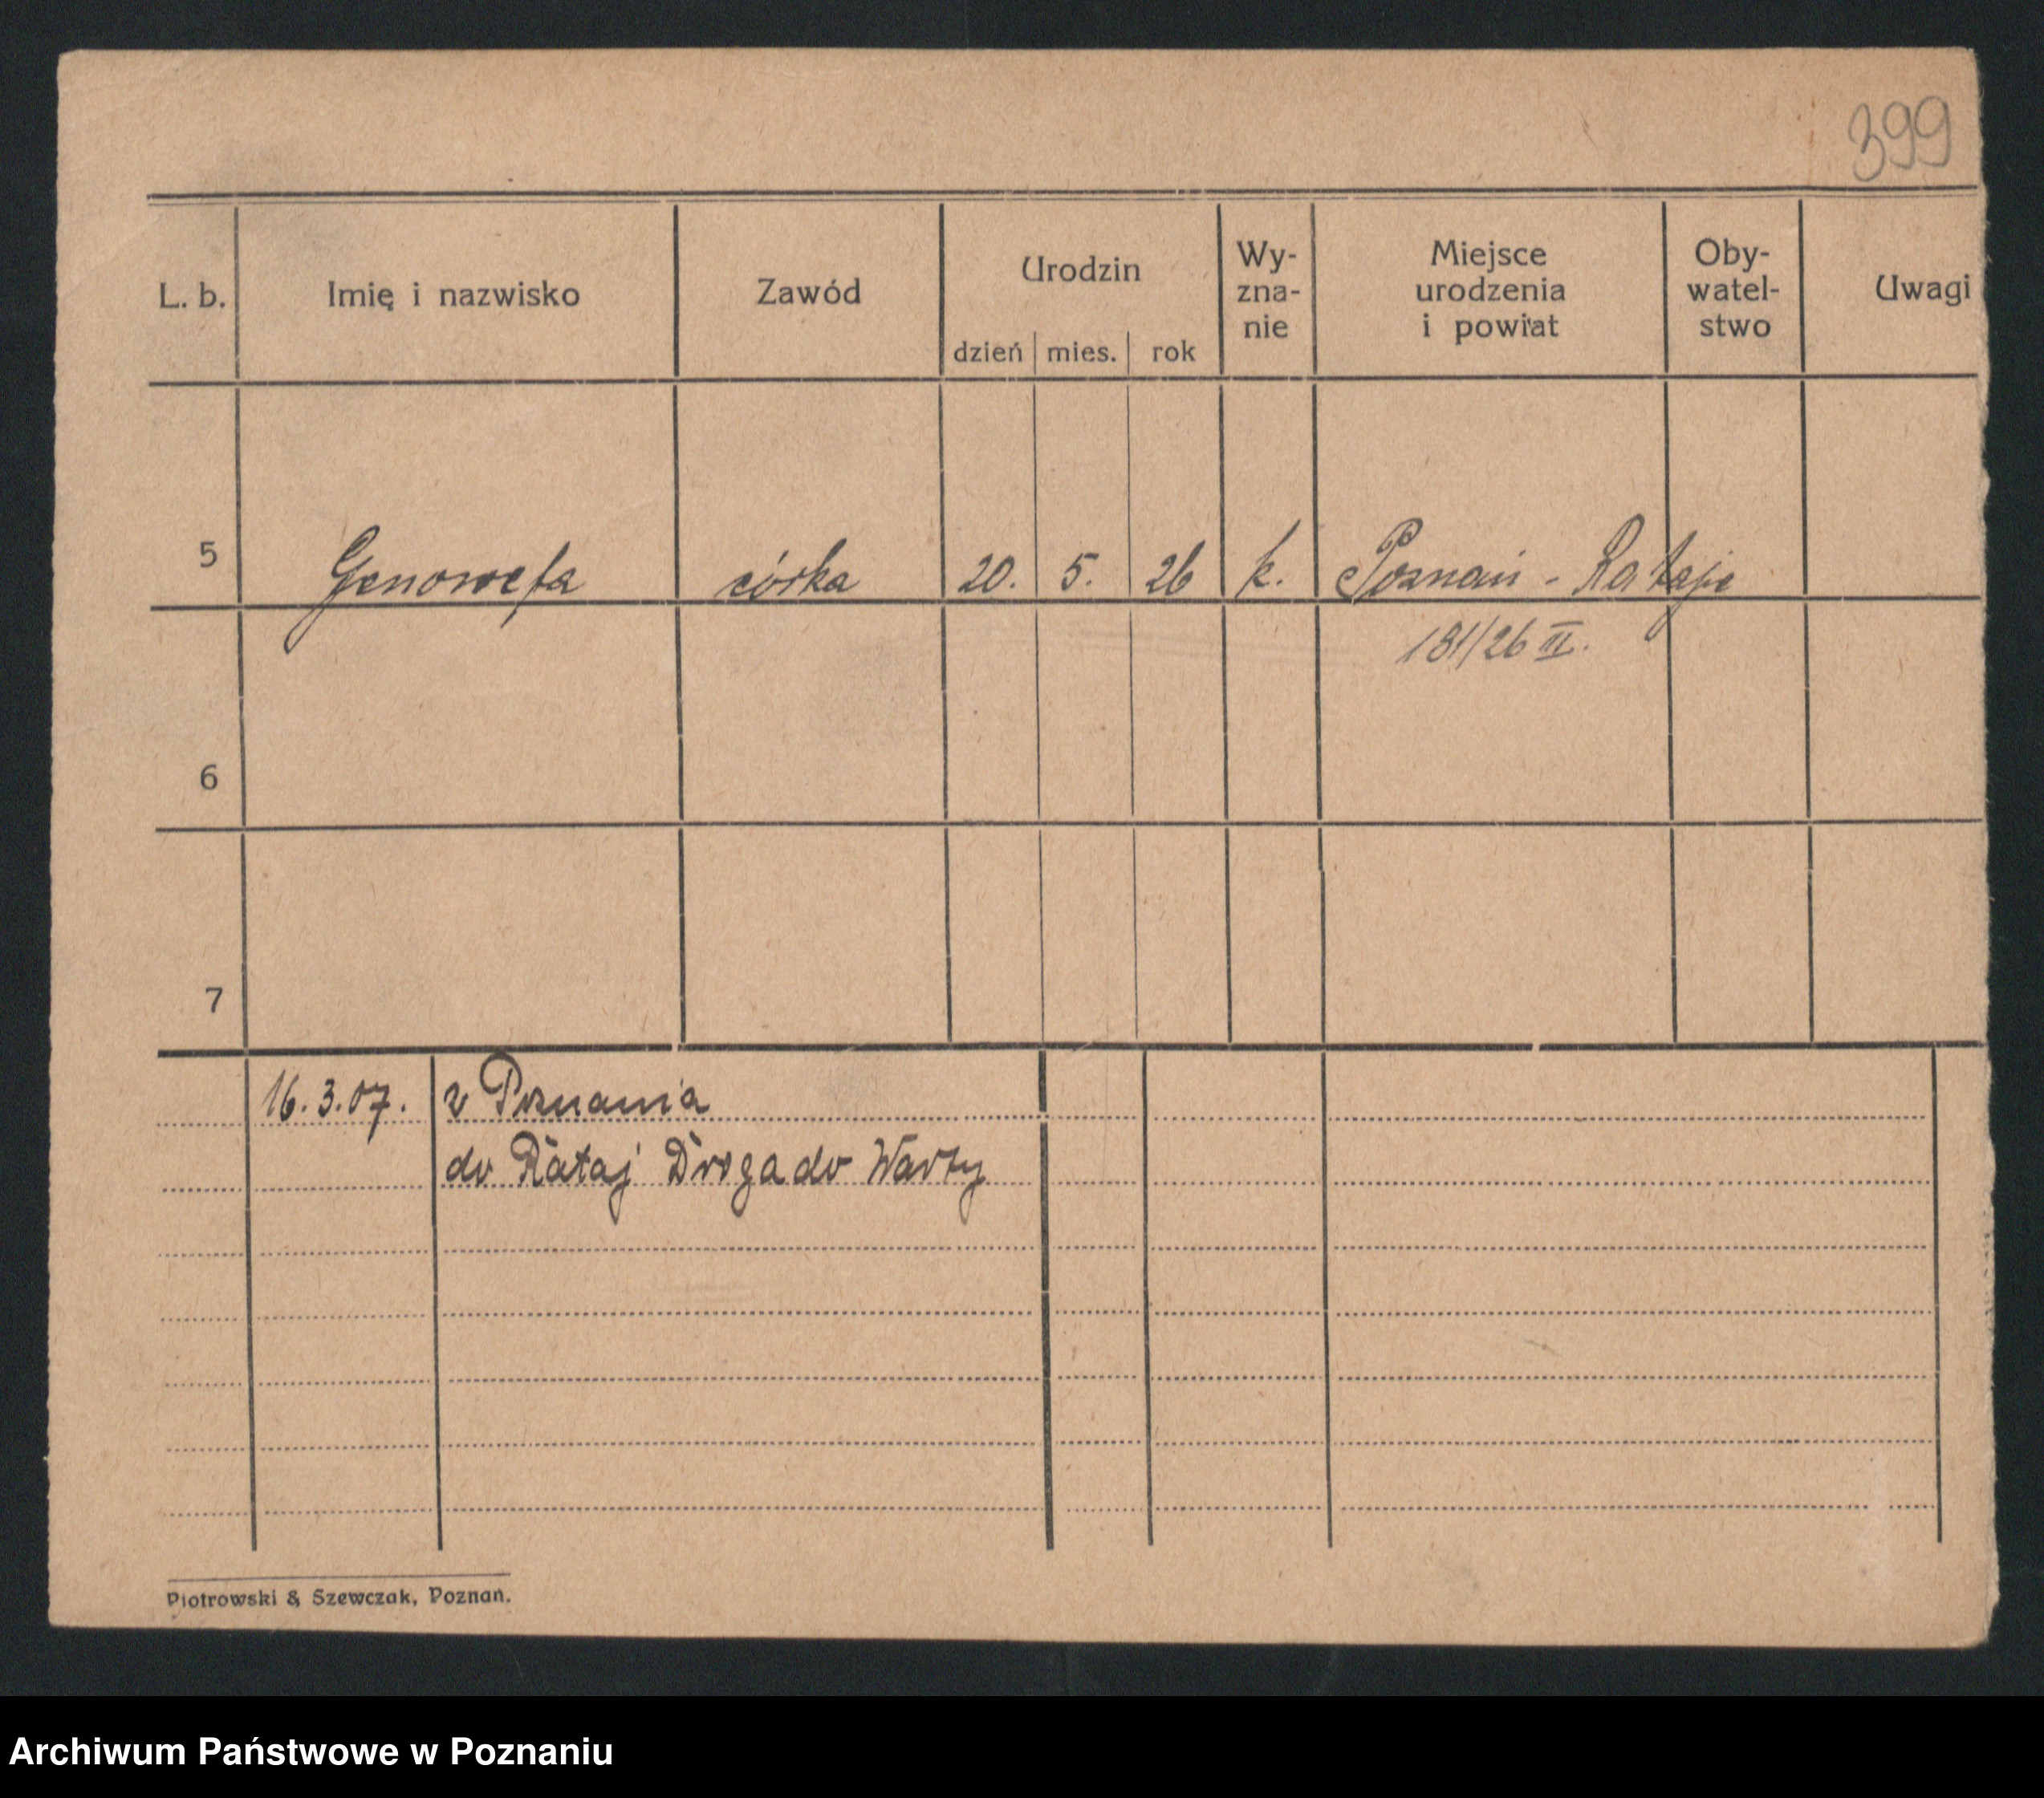 399
L. b. Imię i nazwisko Zawód Urodzin Wy- zna- nie Miejsce urodzenia i powiat Oby- watel- stwo Uwagi
dzień mies. rok
5 Genowefa córka 20. 5. 26 k. Poznań - Rataje
181/26 II.
6
7
16.3.07. z Poznania
do Rataj Droga do Warty
Piotrowski & Szewczak, Poznań.
Archiwum Państwowe w Poznaniu